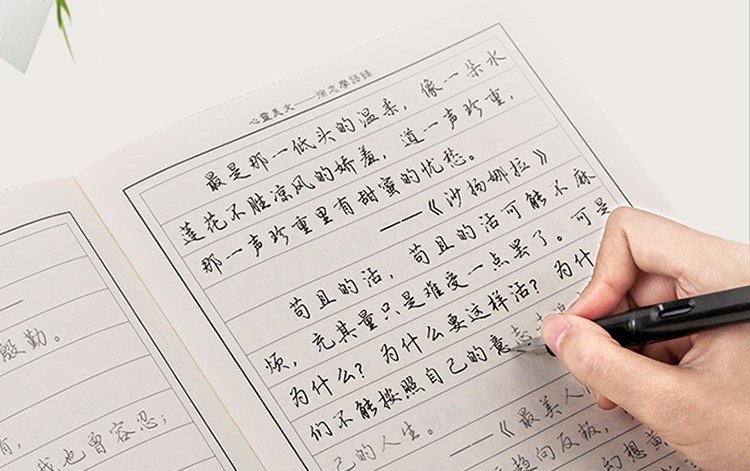 殷勤。
我也曾容忍；
心靈美文——徐志摩語錄
最是那一低头的温柔，像一朵水
莲花不胜凉风的娇羞，道一声珍重，
那一声珍重里有甜蜜的忧愁。
——《沙扬娜拉》
苟且的活，苟且的活可能不麻
烦，充其量只是难受一点罢了。可是
为什么？为什么要这样活？为什
们不能按照自己的意志
己的人生。
——《最美人
趋向反叛，
幻想黄